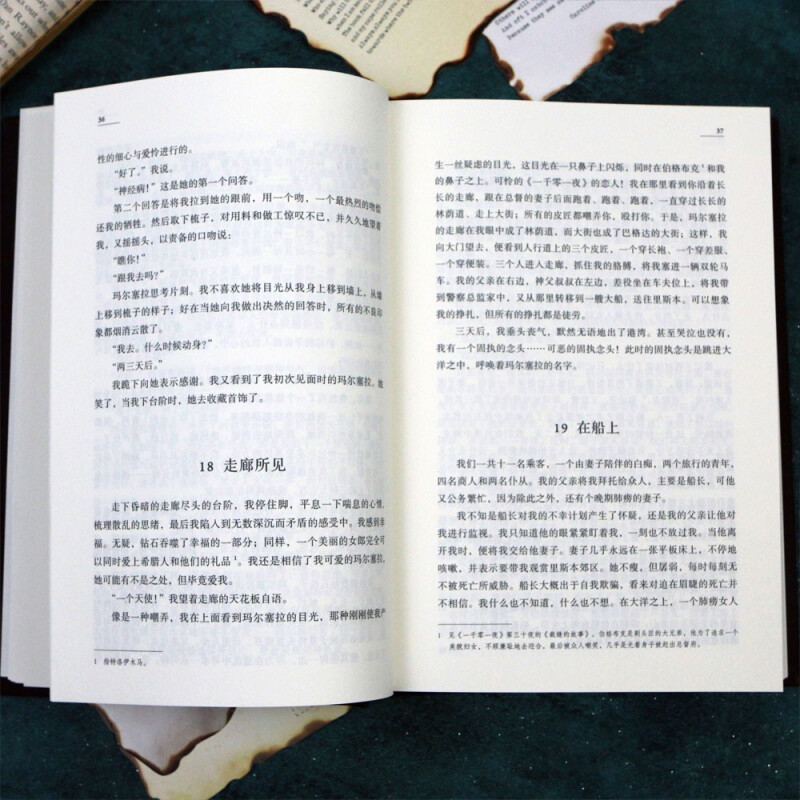 Our R
was
out an
they
the book
because they see
Others will
And oft I catch
Caroline
36
性的细心与爱怜进行的。
“好了。”我说。
“神经病！”这是她的第一个问答。
第二个回答是将我拉到她的跟前，用一个吻，一个最热烈的吻偿
还我的牺牲。然后取下梳子，对用料和做工惊叹不已，并久久地望着
我，又摇摇头，以责备的口吻说：
“瞧你！”
“跟我去吗？”
玛尔塞拉思考片刻。我不喜欢她将目光从我身上移到墙上，从墙
上移到梳子的样子；好在当她向我做出决然的回答时，所有的不良印
象都烟消云散了。
“我去。什么时候动身？”
“两三天后。”
我跪下向她表示感谢。我又看到了我初次见面时的玛尔塞拉，她
笑了，当我下台阶时，她去收藏首饰了。
18 走廊所见
走下昏暗的走廊尽头的台阶，我停住脚，平息一下喘息的心情，
梳理散乱的思绪，最后我陷入到无数深沉而矛盾的感受中。我感到幸
福。无疑，钻石吞噬了幸福的一部分；同样，一个美丽的女郎完全可
以同时爱上希腊人和他们的礼品1。我还是相信了我可爱的玛尔塞拉，
她可能有不是之处，但毕竟爱我。
“一个天使！”我望着走廊的天花板自语。
像是一种嘲弄，我在上面看到玛尔塞拉的目光，那种刚刚使我产
1 指特洛伊木马。
37
生一丝疑虑的目光，这目光在一只鼻子上闪烁，同时在伯格布克1和我
的鼻子之上。可怜的《一千零一夜》的恋人！我在那里看到你沿着长
长的走廊，跟在总督的妻子后面跑着、跑着、跑着，一直穿过长长的
林荫道、走上大街；所有的皮匠都嘲弄你，殴打你。于是，玛尔塞拉
的走廊在我眼中成了林荫道，而大街也成了巴格达的大街；这样，我
向大门望去，便看到人行道上的三个皮匠，一个穿长袍、一个穿差服、
一个穿便装。三个人进入走廊，抓住我的胳膊，将我塞进一辆双轮马
车。我的父亲在右边，神父叔叔在左边，差役坐在车夫位上，将我带
到警察总监家中，又从那里转移到一艘大船，送往里斯本。可以想象
我的挣扎，但所有的挣扎都是徒劳。
三天后，我垂头丧气，默然无语地出了港湾。甚至哭泣也没有，
我有一个固执的念头……可恶的固执念头！此时的固执念头是跳进大
洋之中，呼唤着玛尔塞拉的名字。
19 在船上
我们一共十一名乘客，一个由妻子陪伴的白痴，两个旅行的青年，
四名商人和两名仆从。我的父亲将我拜托给众人，主要是船长，可他
又公务繁忙，因为除此之外，还有个晚期肺痨的妻子。
我不知是船长对我的不幸计划产生了怀疑，还是我的父亲让他对
我进行监视。我只知道他的眼紧紧盯着我，一刻也不放过我。当他离
开我时，便将我交给他妻子。妻子几乎永远在一张平板床上，不停地
咳嗽，并表示要带我观赏里斯本郊区。她不瘦，但孱弱，每时每刻无
不被死亡所威胁。船长大概出于自我欺骗，看来对迫在眉睫的死亡并
不相信。我什么也不知道，什么也不想。在大洋之上，一个肺痨女人
1 见《一千零一夜》第三十夜的《裁缝的故事》，伯格布克是剃头匠的大兄弟，他为了追求一个
美貌妇女，不顾廉耻地去迎合，最后被众人嘲笑，几乎是光着身子被赶出总督府。